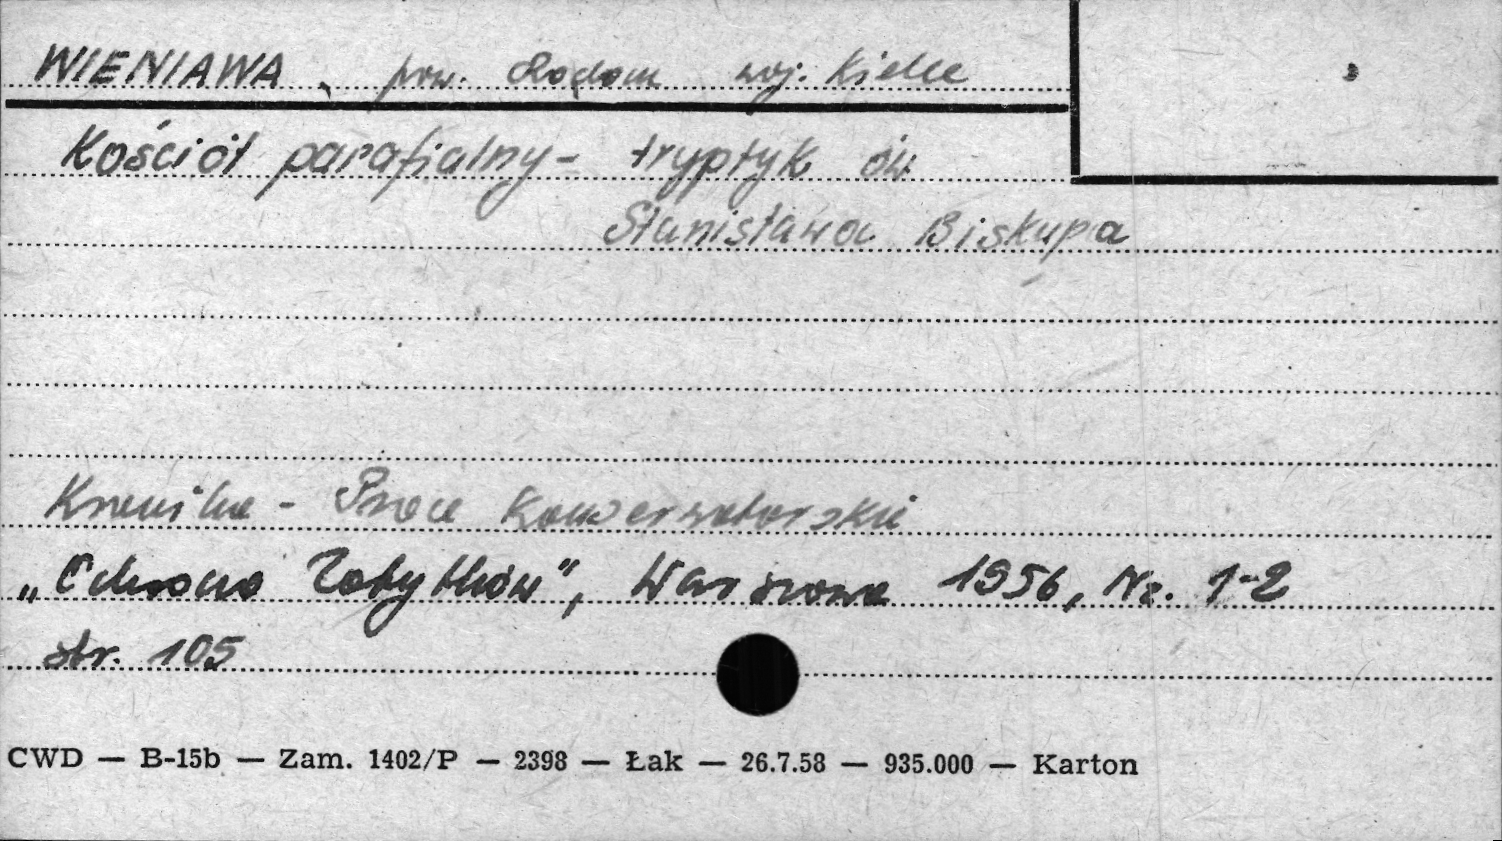 WIENIAWA, pow. Radom woj. Kielce
Kościół parafjalny - tryptyk św.
Stanisława Biskupa
Kronika - Prace Konserwatorskie
„Ochrona Zabytków”, Warszawa 1956, Nr. 1-2
str. 105
CWD — B-15b — Zam. 1402/P — 2398 — Łak — 26.7.58 — 935.000 — Karton